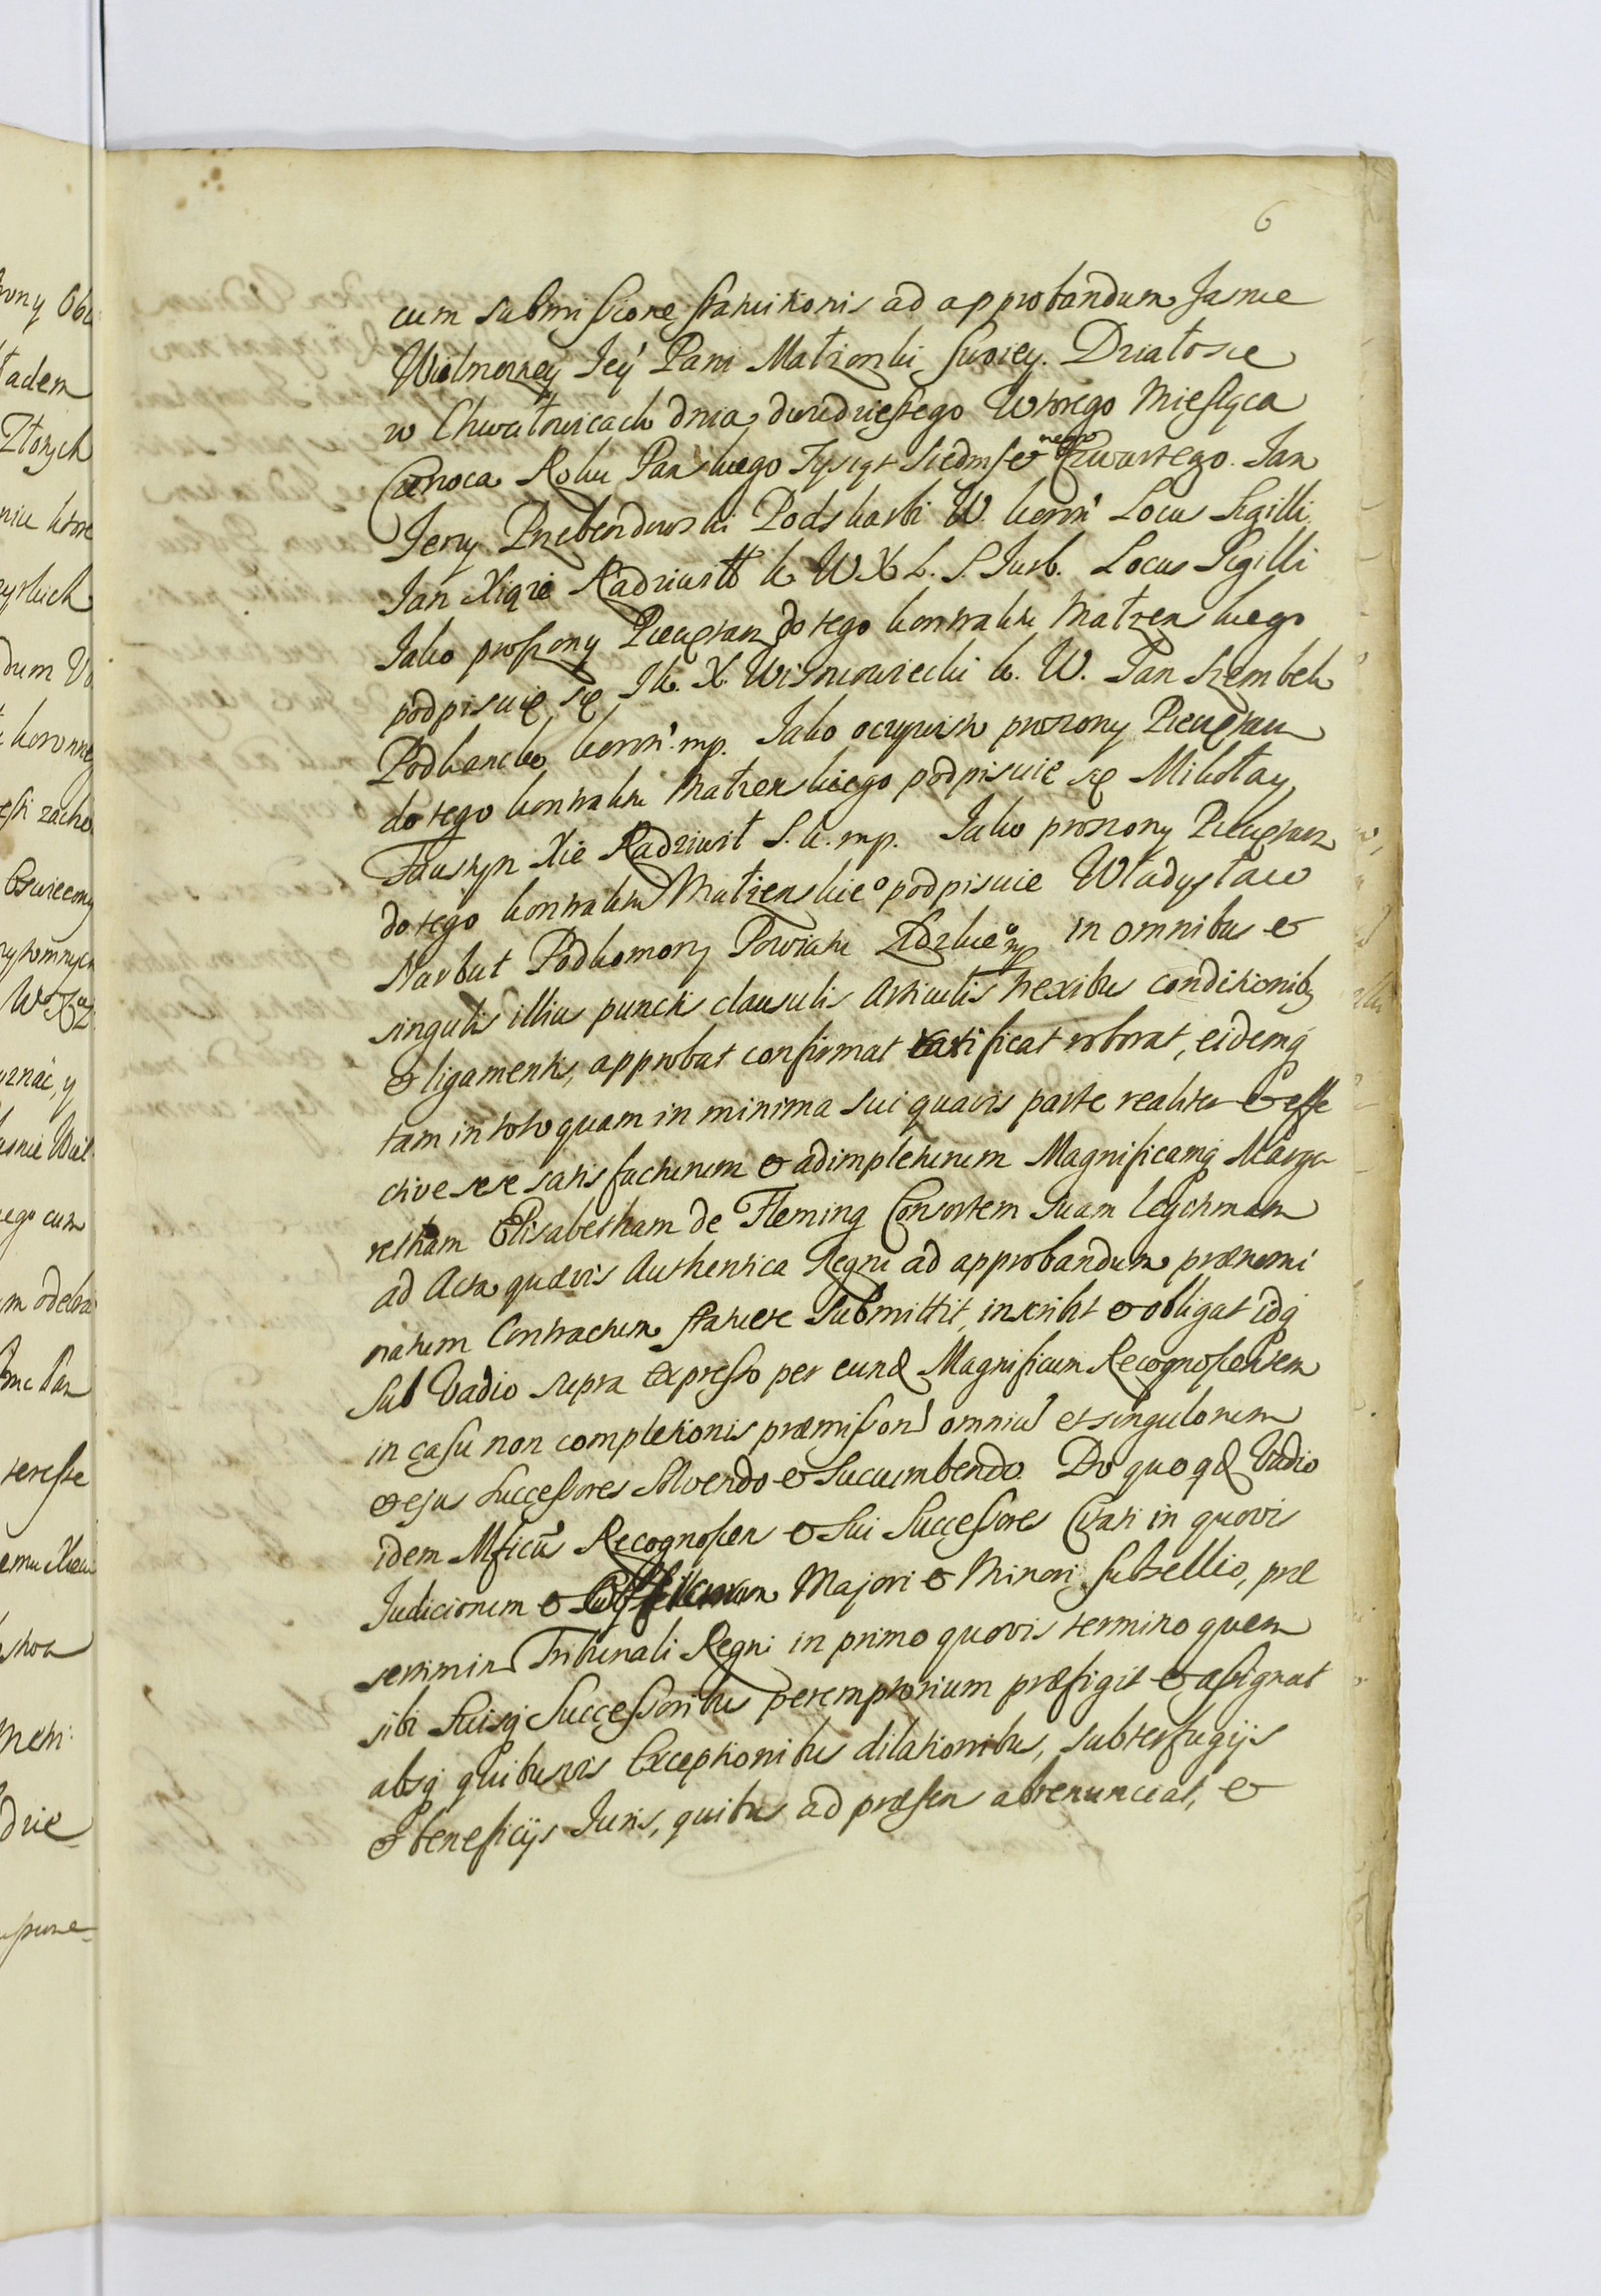 6
cum submissione statuitionis ad approbandum Jasnie
Wielmozney Jey Pani Małzonki Swoiey. Działo sie
w Chwałowicach dnia dwudziestego Wtorego Miesiąca
Czerwca Roku Panskiego Tysiąt Siedmset nego Czwartego. Jan
Jerzy Przebendowski Podskarbi W. koron Locus Sigilli
Jan Xiąże Radziwiłł k W X L. S. Jurb. Locus Sigilli
Jako proszony Pieczętarz do tego kontraktu Małzenskiego
podpisuię się J k. X. Wisniowiecki k. W. Jan Szembek
Podkancle koron. mp. Jako oczywisto proszony Pieczętarz
do tego kontraktu Małzenskiego podpisuie się Mikołay
Faustyn Xże Radziwił S. L. mp. Jako proszony Pieczętarz
do tego kontraktu Małzenskieo podpisuie Władysław
Narbut Podkomorzy Powiatu Lidzkieo mp in omnibus et
singulis illius punctis clausulis Articulis nexibus conditionibq
et ligamentis, approbat confirmat ratificat roborat, eidemq
tam in toto quam in minima sui quavis parte realiter et effe
ctive sese satisfacturum et adimpleturum Magnificamq Marga
retham Elisabetham de Fleming Consortem Suam legitimam
ad Acta quævis Authentica Regni ad approbandum prænomi
natum Contractum statuere Submittit, inscribit et obligat idq
sub Vadio supra expresso per eund Magnificum Recognoscentem
in casu non completionis præmissor omniu et singulorum
et ejus Successores solvendo et Succumbendo. Pro quo qd Vadio
idem Mficus Recognoscens et Sui Successores Citati in quovis
Judiciorum et Majori et Minori Subsellio, præ
sertim in Tribunali Regni in primo quovis termino quem
sibi Suisq Successoribus peremptorium præfigit et assignat
absq quibusvis Exceptionibus dilationibus, subterfugijs
et beneficijs Juris, quibus ad præsens abrenunciat, et